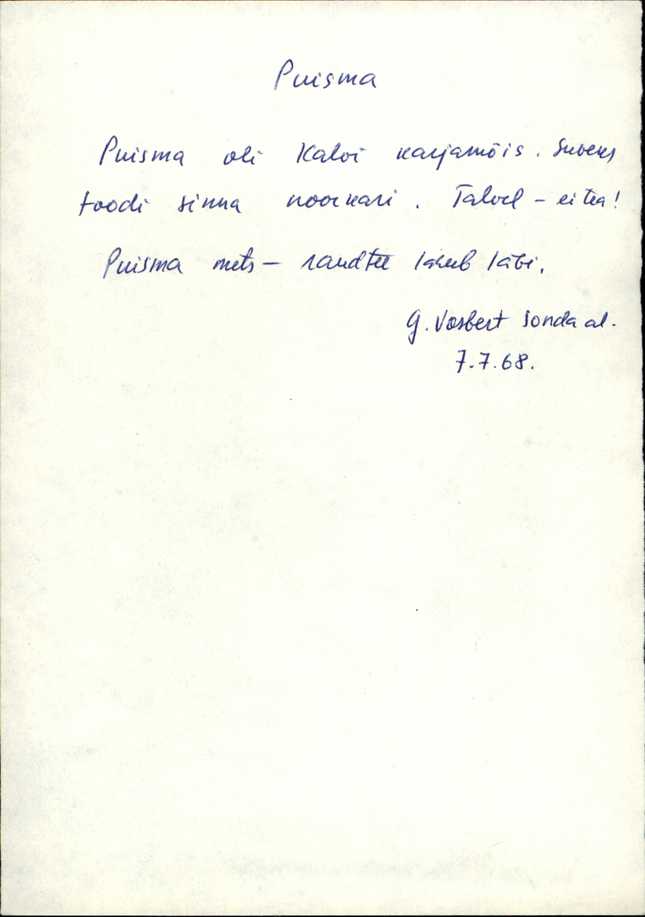 Puisma
Puisma oli Kalvi karjamõis. Suveks
toodi sinna noorkari. Talvel - ei tea!
Puisma mets - raudtee läheb läbi.
G. Vosbert Sonda al.
7.7.68.